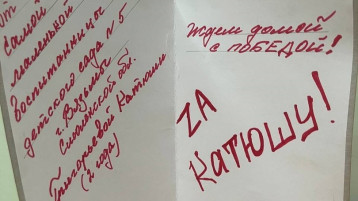 От
самой
маленькой
воспитанницы
детского сада № 5
г. Вязьмы
Смоленской обл.
Григорьевой Катюши
(2 года)
Ждем домой
с ПОБЕДОЙ!
ZA
Катюшу!